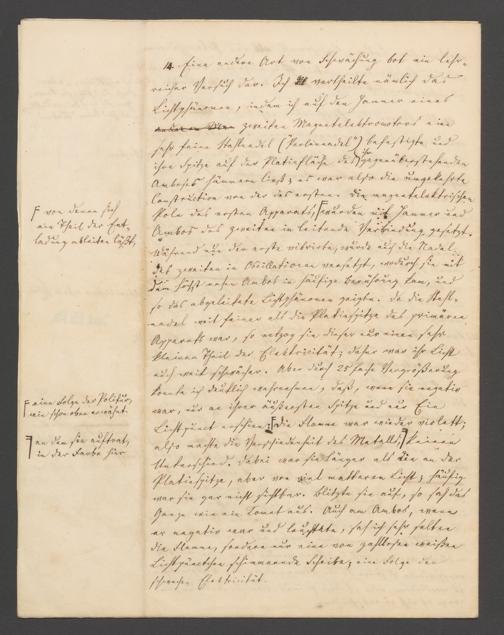 14. Eine andere Art von Schwächung bot ein lehr-
reicher Versuch dar. Ich vertheilte nämlich das
Lichtphänomen, indem ich auf den Hammer eines
zweiten Magnetelektromotors eine
sehr feine Stahlnadel ("Perlennadel") befestigte und
ihre Spitze auf der Platinfläche des ihr gegenüberstehenden
Ambosses hämmern ließ; es war also die umgekehrte
Construction von der des ersten. Die magnetelektrischen
Pole des ersten Apparats, wurden mit Hammer und
Ambos des zweiten in leitende Verbindung gesetzt.
Während nur der erste vibrirte, wurde auch die Nadel
des zweiten in Oscillationen versetzt, wodurch sie mit
dem sehr nahen Ambos in häufige Berührung kam, und
so das abgeleitete Lichtphänomen zeigte. Da die Stahl-
nadel weit feiner als die Platinspitze des primären
Apparats war, so entzog sie dieser nur einen sehr
kleinen Theil der Elektricität; daher war ihr Licht
auch weit schwächer. Aber durch 25fache Vergrößerung
konnte ich deutlich wahrnehmen, daß, wenn sie negativ
war, nur an ihrer äußersten Spitze und nur Ein
Lichtpunct erschien; die Flamme war wieder violett;
also machte die Verschiedenheit des Metalls, keinen
Unterschied. Dabei war sie länger als die an der
Platinspitze, aber von viel matterem Licht; häufig
war sie gar nicht sichtbar. Blitzte sie auf, so sah das
Ganze wie ein Comet aus. Auch am Ambos, wenn
er negativ war und leuchtete, sah ich sehr selten
die Flamme, sondern nur eine von zahllosen weißen
Lichtpünctchen schimmernde Scheibe; eine Folge der
schwachen Elektricität.
von denen sich
ein Theil der Ent-
ladung ableiten läßt,
eine Folge der Politur,
wie schon oben erwähnt.
an dem sie auftrat,
in der Farbe hier